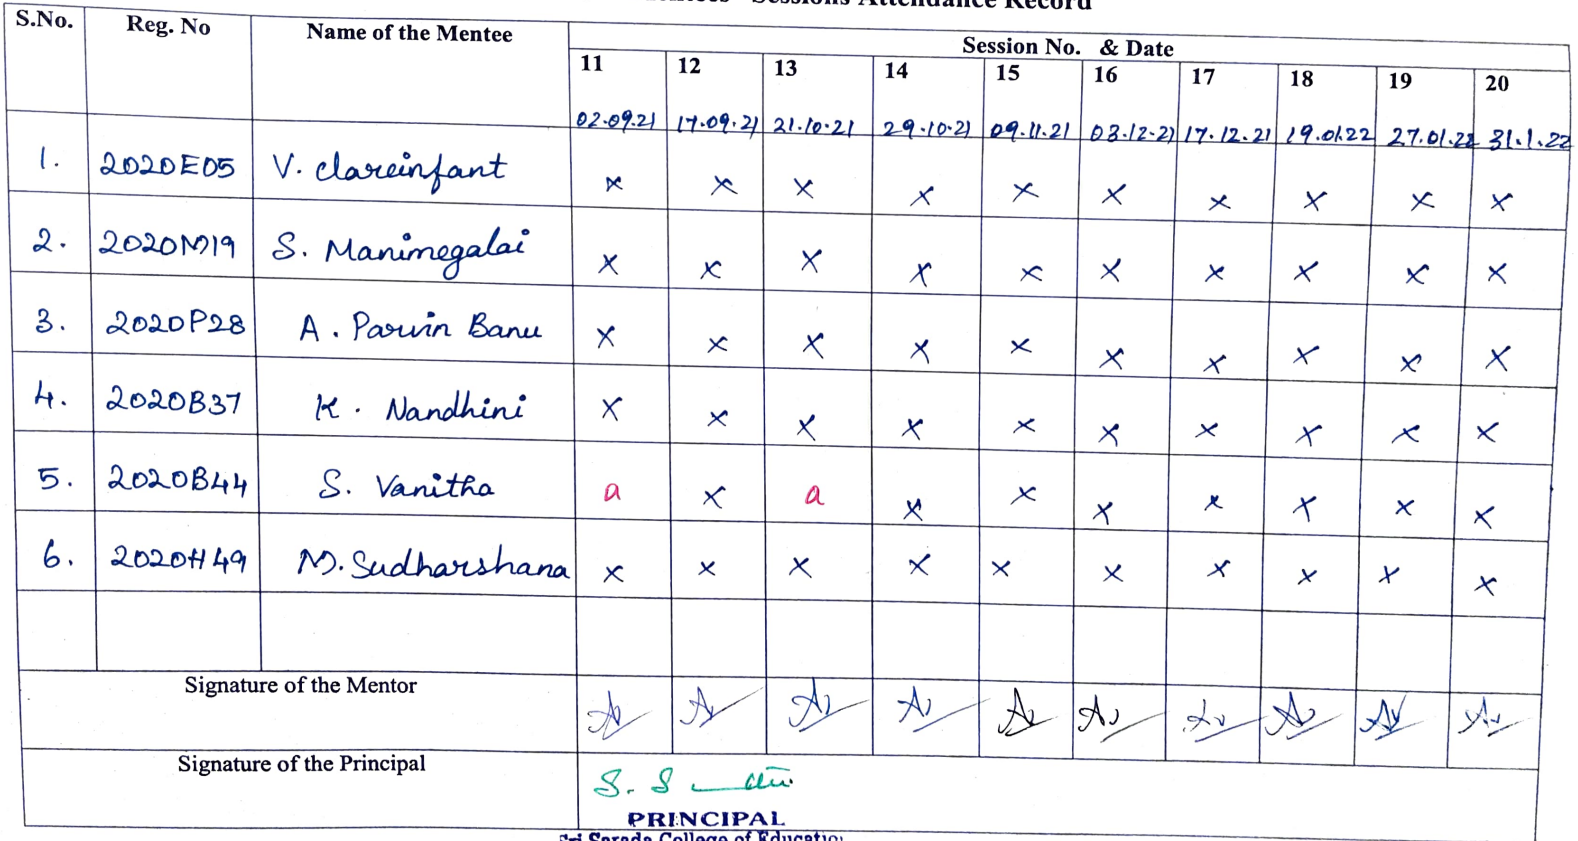 Sessions Attendance Record
S.No. Reg. No Name of the Mentee Session No. & Date
11 12 13 14 15 16 17 18 19 20
02.09.21 17.09.21 21.10.21 29.10.21 09.11.21 03.12.21 17.12.21 19.01.22 27.01.22 31.1.22
1. 2020E05 V. Clareinfant x x x x x x x x x x
2. 2020M19 S. Manimegalai x x x x x x x x x x
3. 2020P28 A. Parvin Banu x x x x x x x x x x
4. 2020B37 K. Nandhini x x x x x x x x x x
5. 2020B44 S. Vanitha a x a x x x x x x x
6. 2020H49 M. Sudharshana x x x x x x x x x x
Signature of the Mentor
Signature of the Principal
PRINCIPAL
Sri Sarada College of Education